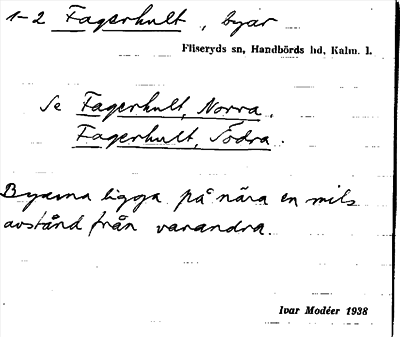 1-2 Fagerhult, byar
Fliseryds sn, Handbörds hd, Kalm. l.
Se Fagerhult, Norra.
Fagerhult, Södra.
Byarna ligga på nära en mils
avstånd från varandra.
Ivar Modéer 1938